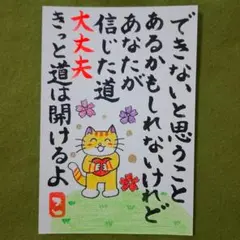 できないと思うこと
あるかもしれないけれど
あなたが
信じた道
大丈夫
きっと道は開けるよ